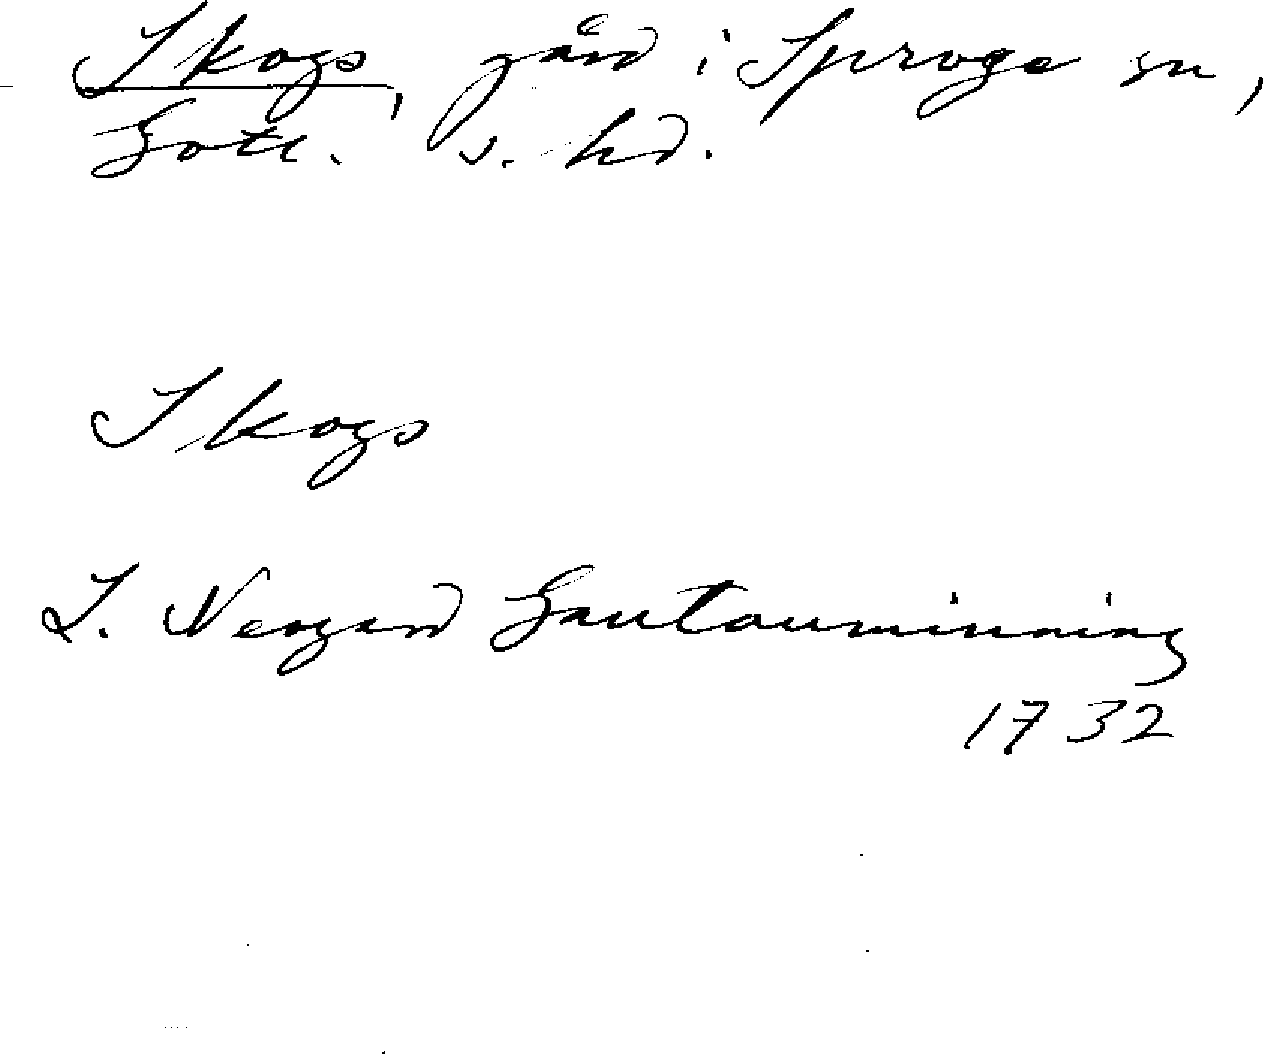 Skogs, gård i Sproge sn,
Gotl. s. hd.
Skogs
L. Neogard Gautauminning
1732